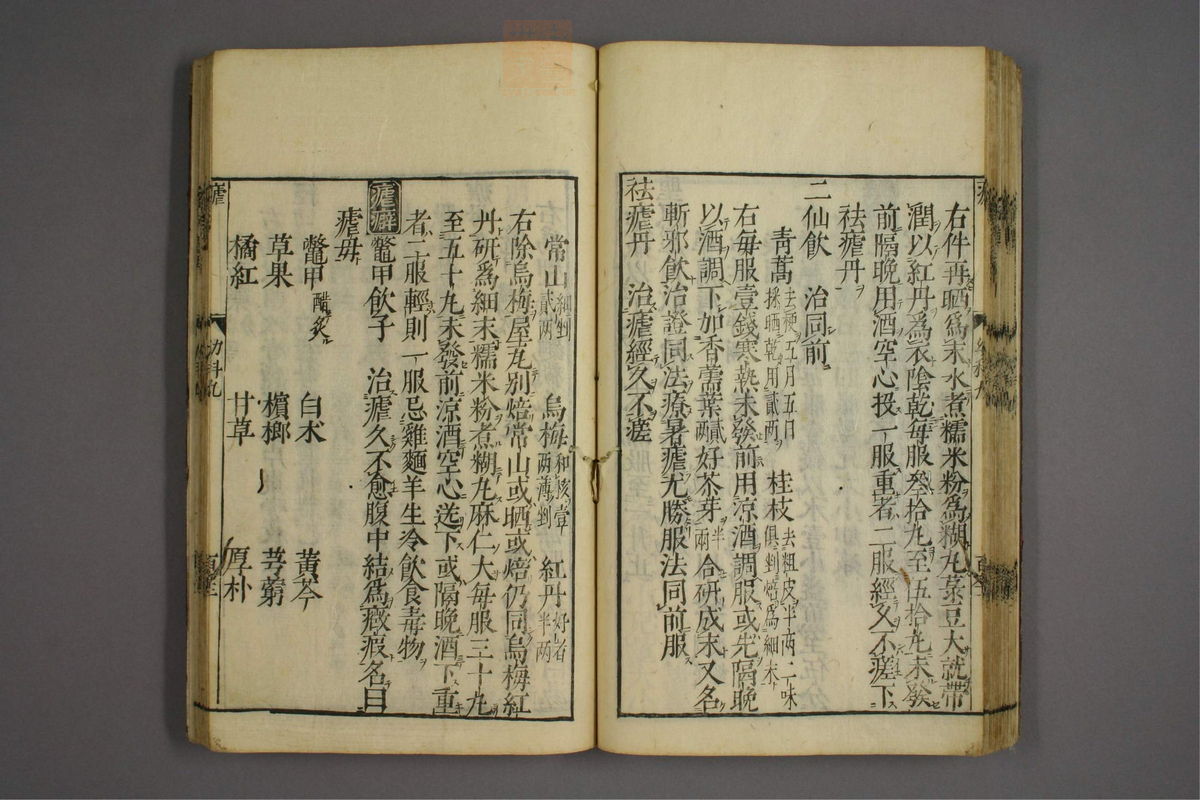 右件再晒爲末水煮糯米粉爲糊丸菉豆大就帶
潤以紅丹爲衣陰乾每服叄拾丸至伍拾丸未發
前隔晚用酒空心投一服重者二服經久不瘥下
祛瘧丹
二仙飲 治同前
青蒿 去梗五月五日採晒乾用貳兩 桂枝 去粗皮半兩二味俱剉焙爲細末
右每服壹錢寒熱未發前用涼酒調服或先隔晚
以酒調下加香薷葉貳兩好茶芽半兩合研成末又名
斬邪飲治證同法療暑瘧尤勝服法同前服
祛瘧丹 治瘧經久不瘥
常山 細剉貳兩 烏梅 和核壹兩薄剉 紅丹 好者半兩
右除烏梅屋瓦別焙常山或晒或焙仍同烏梅紅
丹研爲細末糯米粉煮糊丸麻仁大每服三十丸
至五十丸未發前涼酒空心送下或隔晚酒下重
者二服輕則一服忌雞麵羊生冷飲食毒物
瘧癖 鼈甲飲子 治瘧久不愈腹中結爲癥瘕名曰
瘧母
鼈甲 醋炙 白朮 黃芩
草果 檳榔 芎藭
橘紅 甘草 厚朴